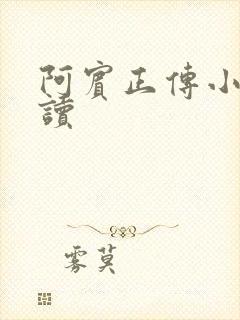 阿賓正傳小
讀
雾莫